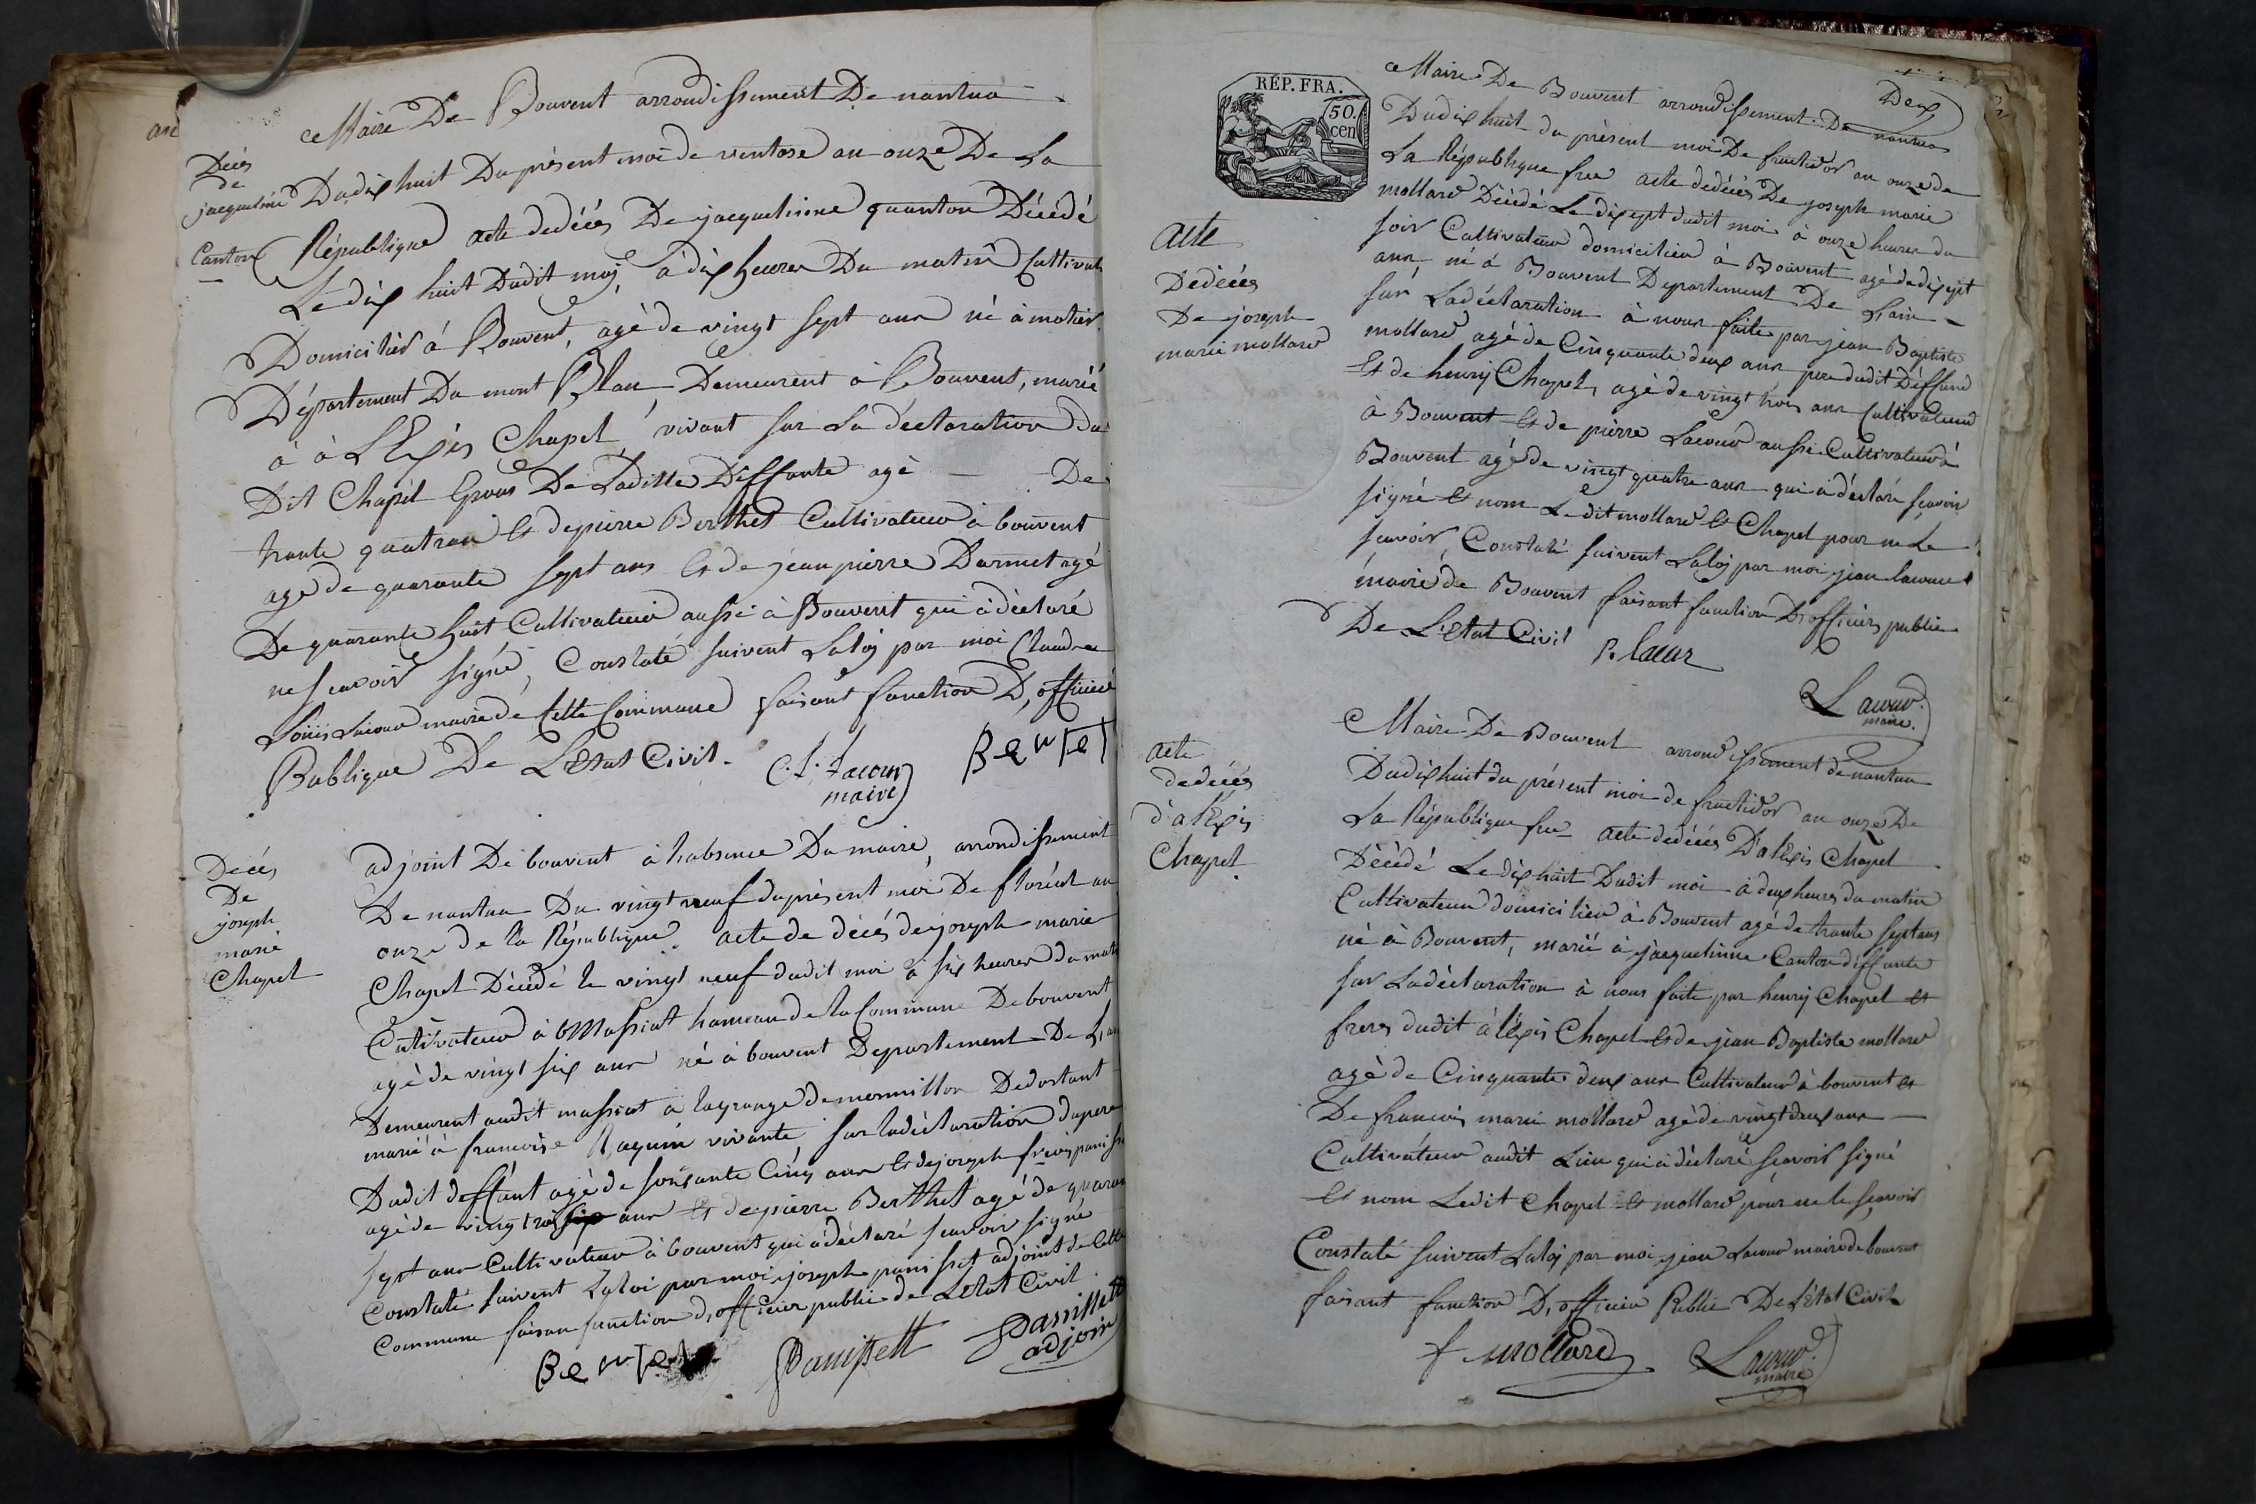 Décés
de
jacqueline
Canton
Maire De Bouvent arrondissement De nantua
Du dix huit Du présent moi de ventose an onze De La
République acte dedécés De jacquelinne quanton Décédé
Le dix huit Dudit moy, à dix heures Du matin Cultivat
Domicilier à Bouvent, agé de vingt sept ans né à motier
Département Du mont Blan Demeurent à Bouvent, marié
à à LEXis Chapel vivant sur La déclaration du
Dit Chapel Epous De Laditte Deffante agé De
trante quatran Et de pierre Berthet Cultivateur à bouvent
agé de quarante sept ans Et de jean pierre Darmet agé
De quarante huit Cultivateur aussi à Bouvent qui à déclaré
ne scavoir signé, Constaté suivent Laloy par moi Claude
Loüis Lacour maire de Cette Commune faisant fonction D, officié
Publique De LEtat Civil.
C. L. Lacour
maire
BerTeT
Décés
De
joseph
marie
Chapel
adjoint De bouvent à l'absence Du maire, arrondissement
De nantua Du vingt neuf du présent moi De floréal an
onze de la République. acte de décés de joseph marie
Chapel Décédé le vingt neuf dudit moi à six heures du mati
Cultivateur à Massiat hameau de la Commune De bouvent
agé de vingt six ans né à bouvent Departement De L,ain
Demeurent audit massiat à lagrange demermillon Dedortant
marié à francoise Raquin vivante sur ladéclaration dupere
Dudit deffant agé de soixante Cinq ans Et dejoseph panisse
agé de vingt trois ans Et de pierre Berthet agé de quaran
sept ans Cultivateur à bouvent qui à déclaré scavoir signé
Constaté suivent La loi par moi joseph panisset adjoint de Cette
Commune faisan fonction d, officier public de LEtat Civil
BerTet
Panissett
Panisset
adjoin
RÉP. FRA.
50.
cen
Deux
acte
Dedécés
De joseph
marie mollard
Maire De Bouvent arrondissement De nantua
Dudix huit du présent moi De fructidor an onze de
La République fse acte dedécés De joseph marie
mollard Décédé Le dix sept dudit moi à onze heures du
soir Cultivateur domicilier à Bouvent agé de dix sept
ans né à Bouvent Departement De L'ain
sur Ladéclaration à nous faite par jean Baptiste
mollard agé de Cinquante deux ans pere dudit Déffand
Et de henry Chapel, agé de vingt trois ans Cultivateur
à Bouvent Et de pierre Lacour aussi Cultivateur à
Bouvent agé de vingt quatre ans qui à déclaré scavoir
signé Et nom Le dit mollard Et Chapel pour ne Le
scavoir, Constaté suivent La loy par moi jean lacour
maire de Bouvent faisant fonction D'officier public
De L'Etat Civil
P. lacur
Lacour.
maire.
acte
dedécés
d'alExis
Chapel
Maire De Bouvent arrondissement de nantua
Dudix huit du présent moi de fructidor an onze De
La République fse acte dedécés D'alExis Chapel
Décédé Le dix huit Dudit moi à deux heures du matin
Cultivateur domicilier à Bouvent agé de trante sept ans
né à Bouvent, marié à jacquelinne Canton déffante
sur Ladéclaration à nous faite par henry Chapel Et
freres dudit àlExis Chapel Et de jean Baptiste mollard
agé de Cinquante deux ans Cultivateur à bouvent Et
De francois marie mollard agé de vingt deux ans
Cultivateur audit Lieu qui à déclaré scavoir signé
Et nom Ledit Chapel Et mollard pour ne le scavoir
Constaté suivent Laloy par moi jean Lacour maire de bouvent
faisant fonction D, officier Public De L'état Civil
f mollard
Lacour.
maire